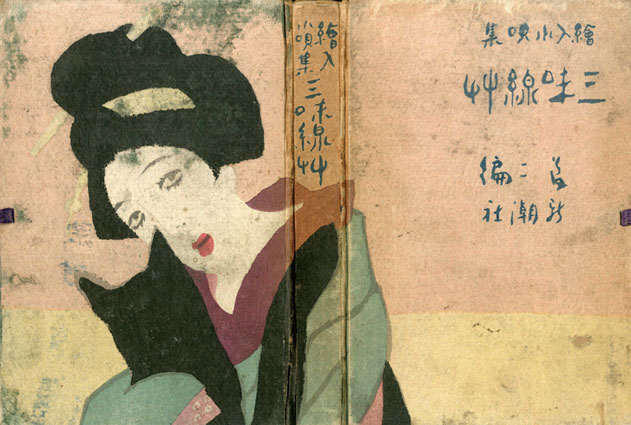 繪入小唄集
三味線艸
夢二編
新潮社
繪入
小唄集
三味線艸